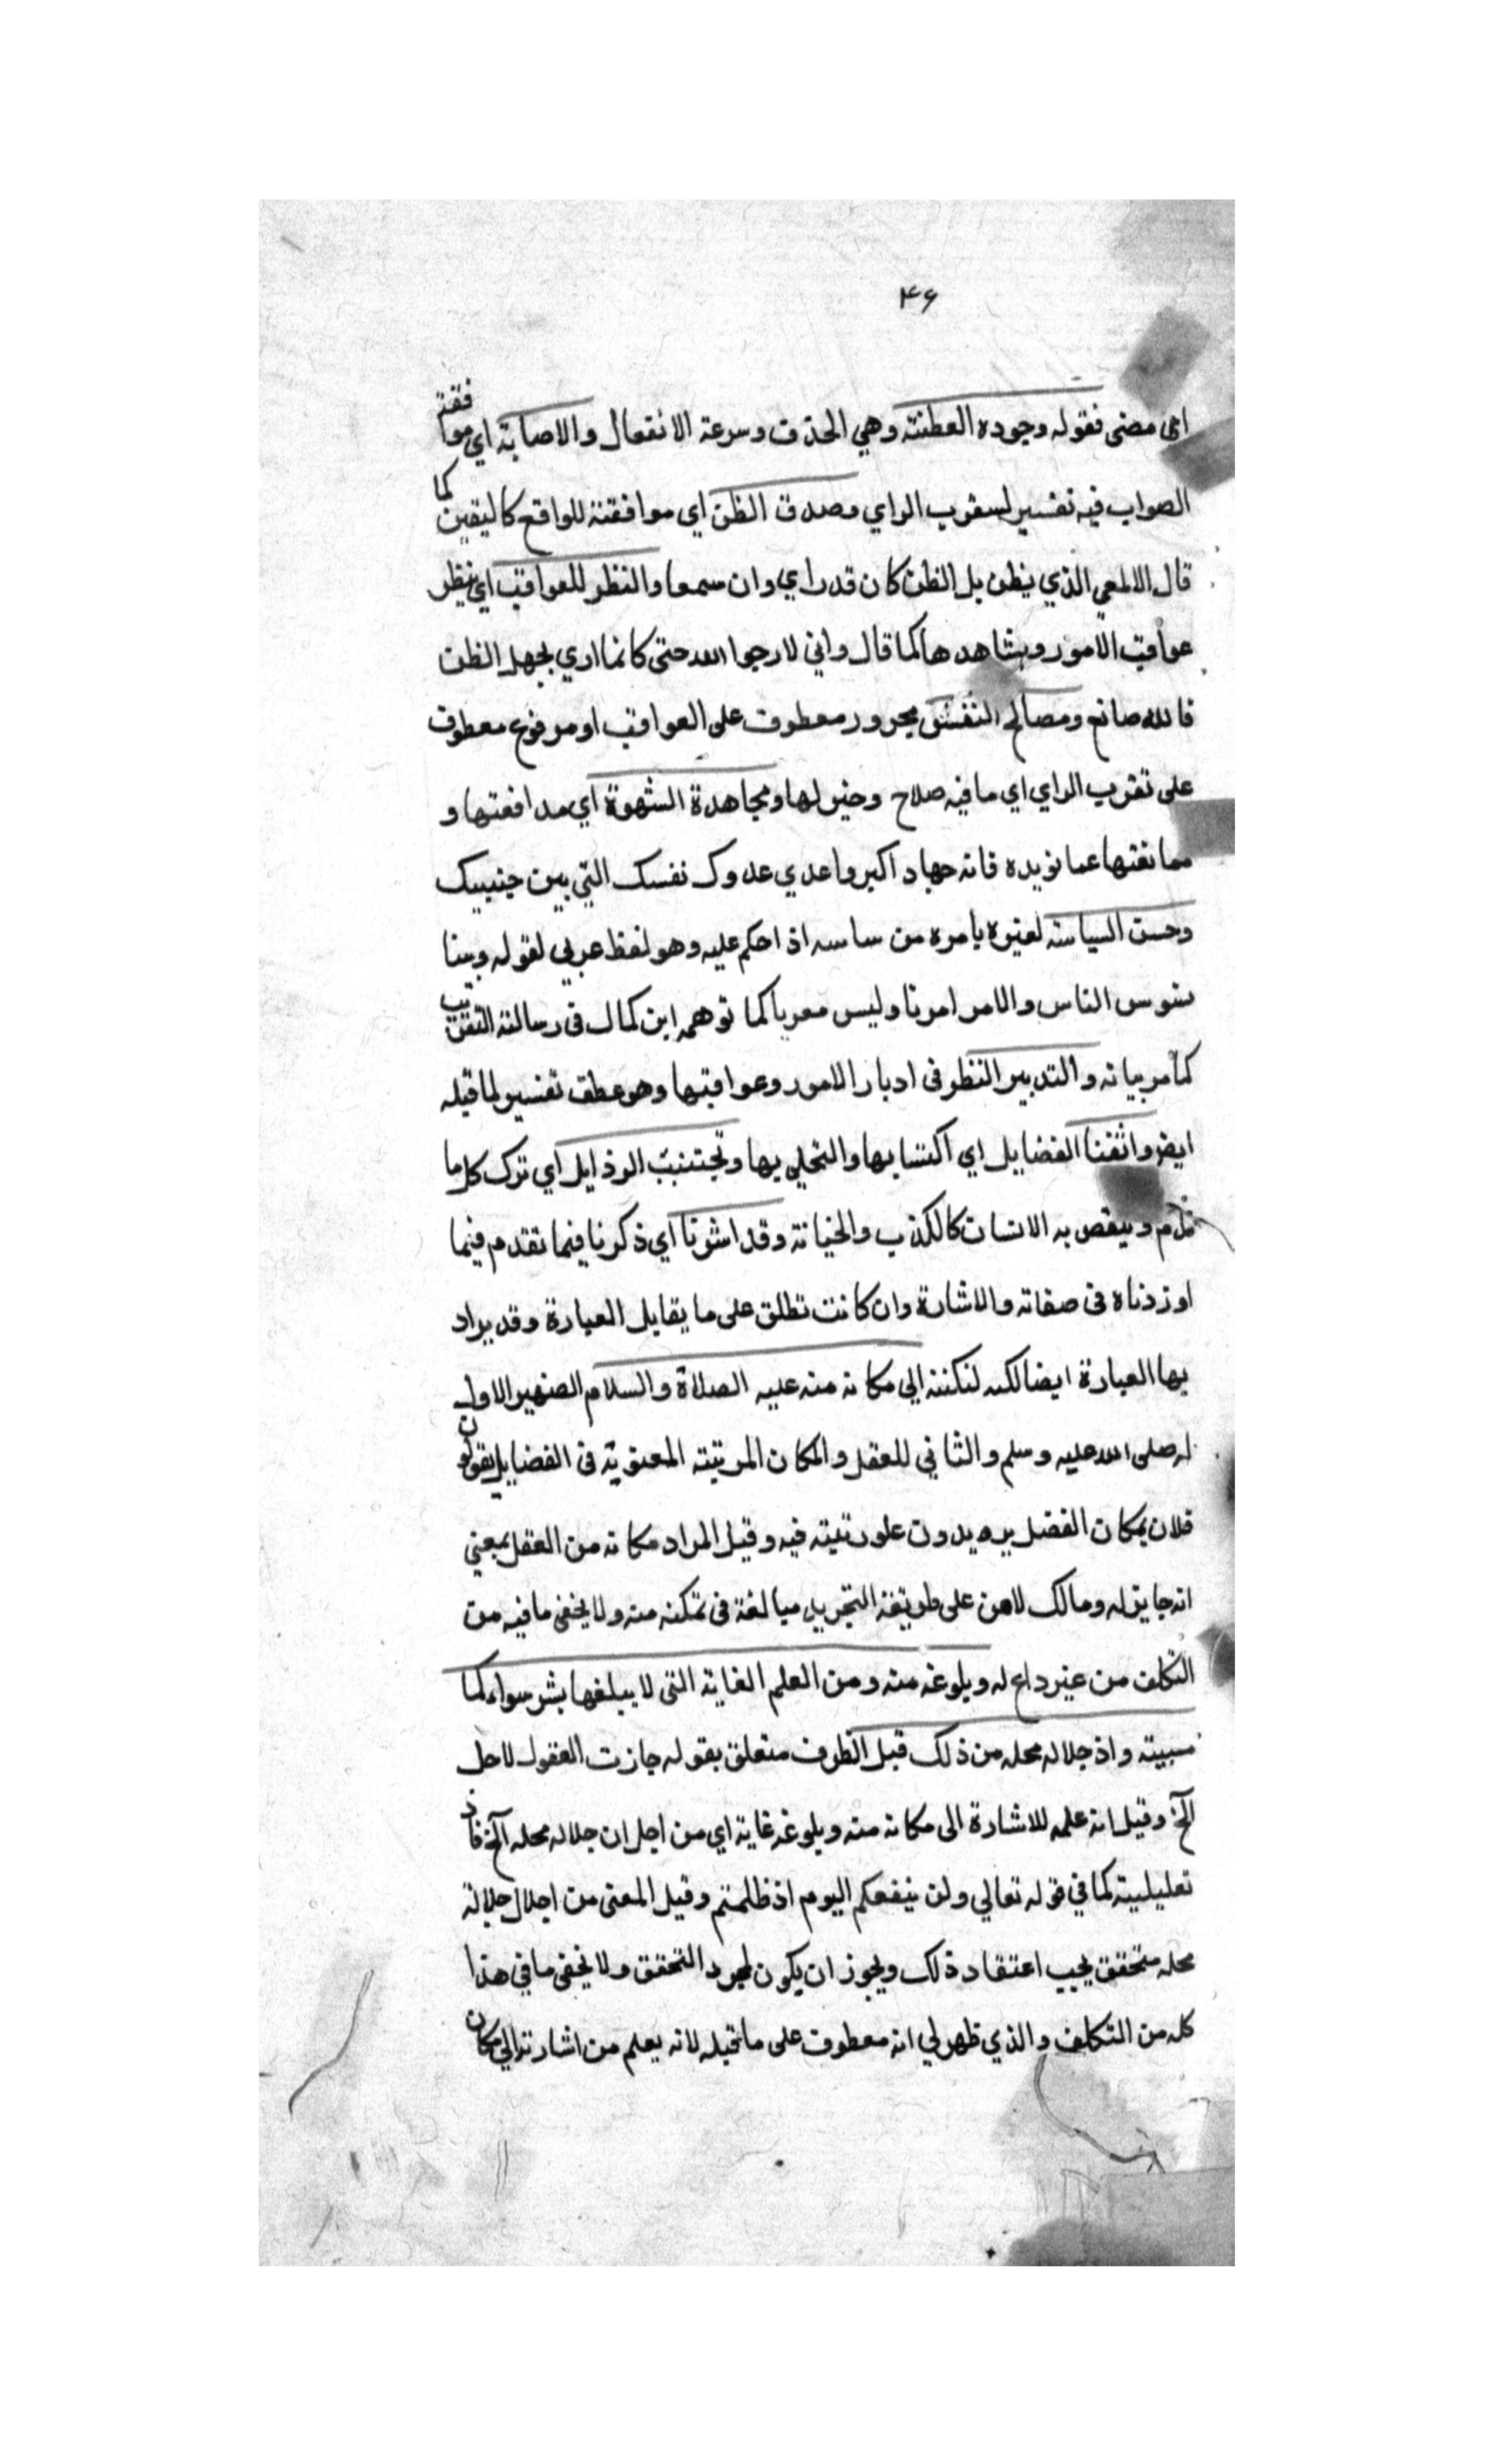 ۴۶
اي مضى فقوله وجودة الفطنة وهي الحذق وسرعة الانتقال والاصابة اي موافقة
الصواب فيه تفسير لسقوب الراي وصدق الظن اي موافقتة للواقع كاليقين كما
قال الالمعي الذي يظن بك الظن كان قد راي وان سمعا والنظر للعواقب اي ينظر
عواقب الامور ويشاهدها كما قال واني لارجوا الله حتى كانما اري بجهل الظن
فالله صانع ومصالح النفس مجرور معطوف على العواقب او مرفوع معطوف
على ثقوب الراي اي ما فيه صلاح وخير لها ومجاهدة الشهوة اي مدافعتها و
ممانعتها عما نويده فانه جهاد اكبر واعدي عدوك نفسك التي بين جنبيك
وحسن السياسة لغيره يامره من ساسه اذ احكم عليه وهو لفظ عربي لقوله وبينا
نسوس الناس والامر امرنا وليس معربا كما توهمه ابن كمال فى رسالة التعريب
كما مر بيانه والتدبير النظر فى ادبار الامور وعواقبها وهو عطف تفسير لما قبله
ايض واقتنا الفضايل اي اكتسابها والتحلي بها وتجنب الرذايل اي ترك كل ما
يذم وينقص به الانسان كالكذب والخيانة وقد اشرنا اي ذكرنا فيما تقدم فيما
اوردناه فى صفاته والاشارة وان كانت تطلق على ما يقابل العبارة وقد يراد
بها العبارة ايضا لكنه لنكتة الي مكانه منه عليه الصلاة والسلام الضمير الاول
له صلى الله عليه وسلم والثاني للعقل والمكان المرتبة المعنوية فى الفضايل يقولون
فلان بمكان الفضل يريدون علو رتبته فيه وقيل المراد مكانه من العقل بمعني
انه جايزله ومالك لامن على طريقة التجريد مبالغة فى تمكنه منه ولا يخفى ما فيه من
التكلف من غير داع له وبلوغه منه ومن العلم الغاية التى لا يبلغها بشر سواه لما
سبيته واذ جلاله محله من ذلك قبل الظرف متعلق بقوله جازت العقول لاجل
الخ وقيل انه علمه للاشارة الى مكانه منه وبلوغه غاية اي من اجل ان جلاله محله الخ فاذ
تعليلية كما في قوله تعالي ولن ينفعكم اليوم اذ ظلمتم وقيل المعنى من اجلال جلالة
محله متحقق يجب اعتقاد ذلك ويجوز ان يكون لمجرد التحقق ولا يخفى ما في هذا
كله من التكلف والذي ظهر لي انه معطوف على ما قبله لانه يعلم من اشارته الي مكان